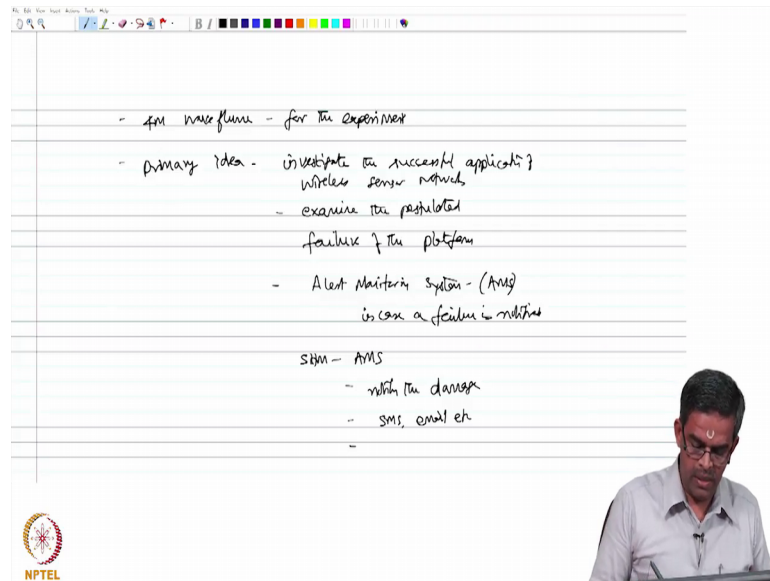 File Edit View Insert Actions Tools Help
B I
- 4M wave flume - for the experiment
- primary idea - investigate the successful applicati of
wireless sensor network
- examine the postulated
failure of the platform
- Alert Monitoring System - (AMS)
in case a failure is notified
SHM - AMS
- notify the damage
- SMS, email etc
-
NPTEL